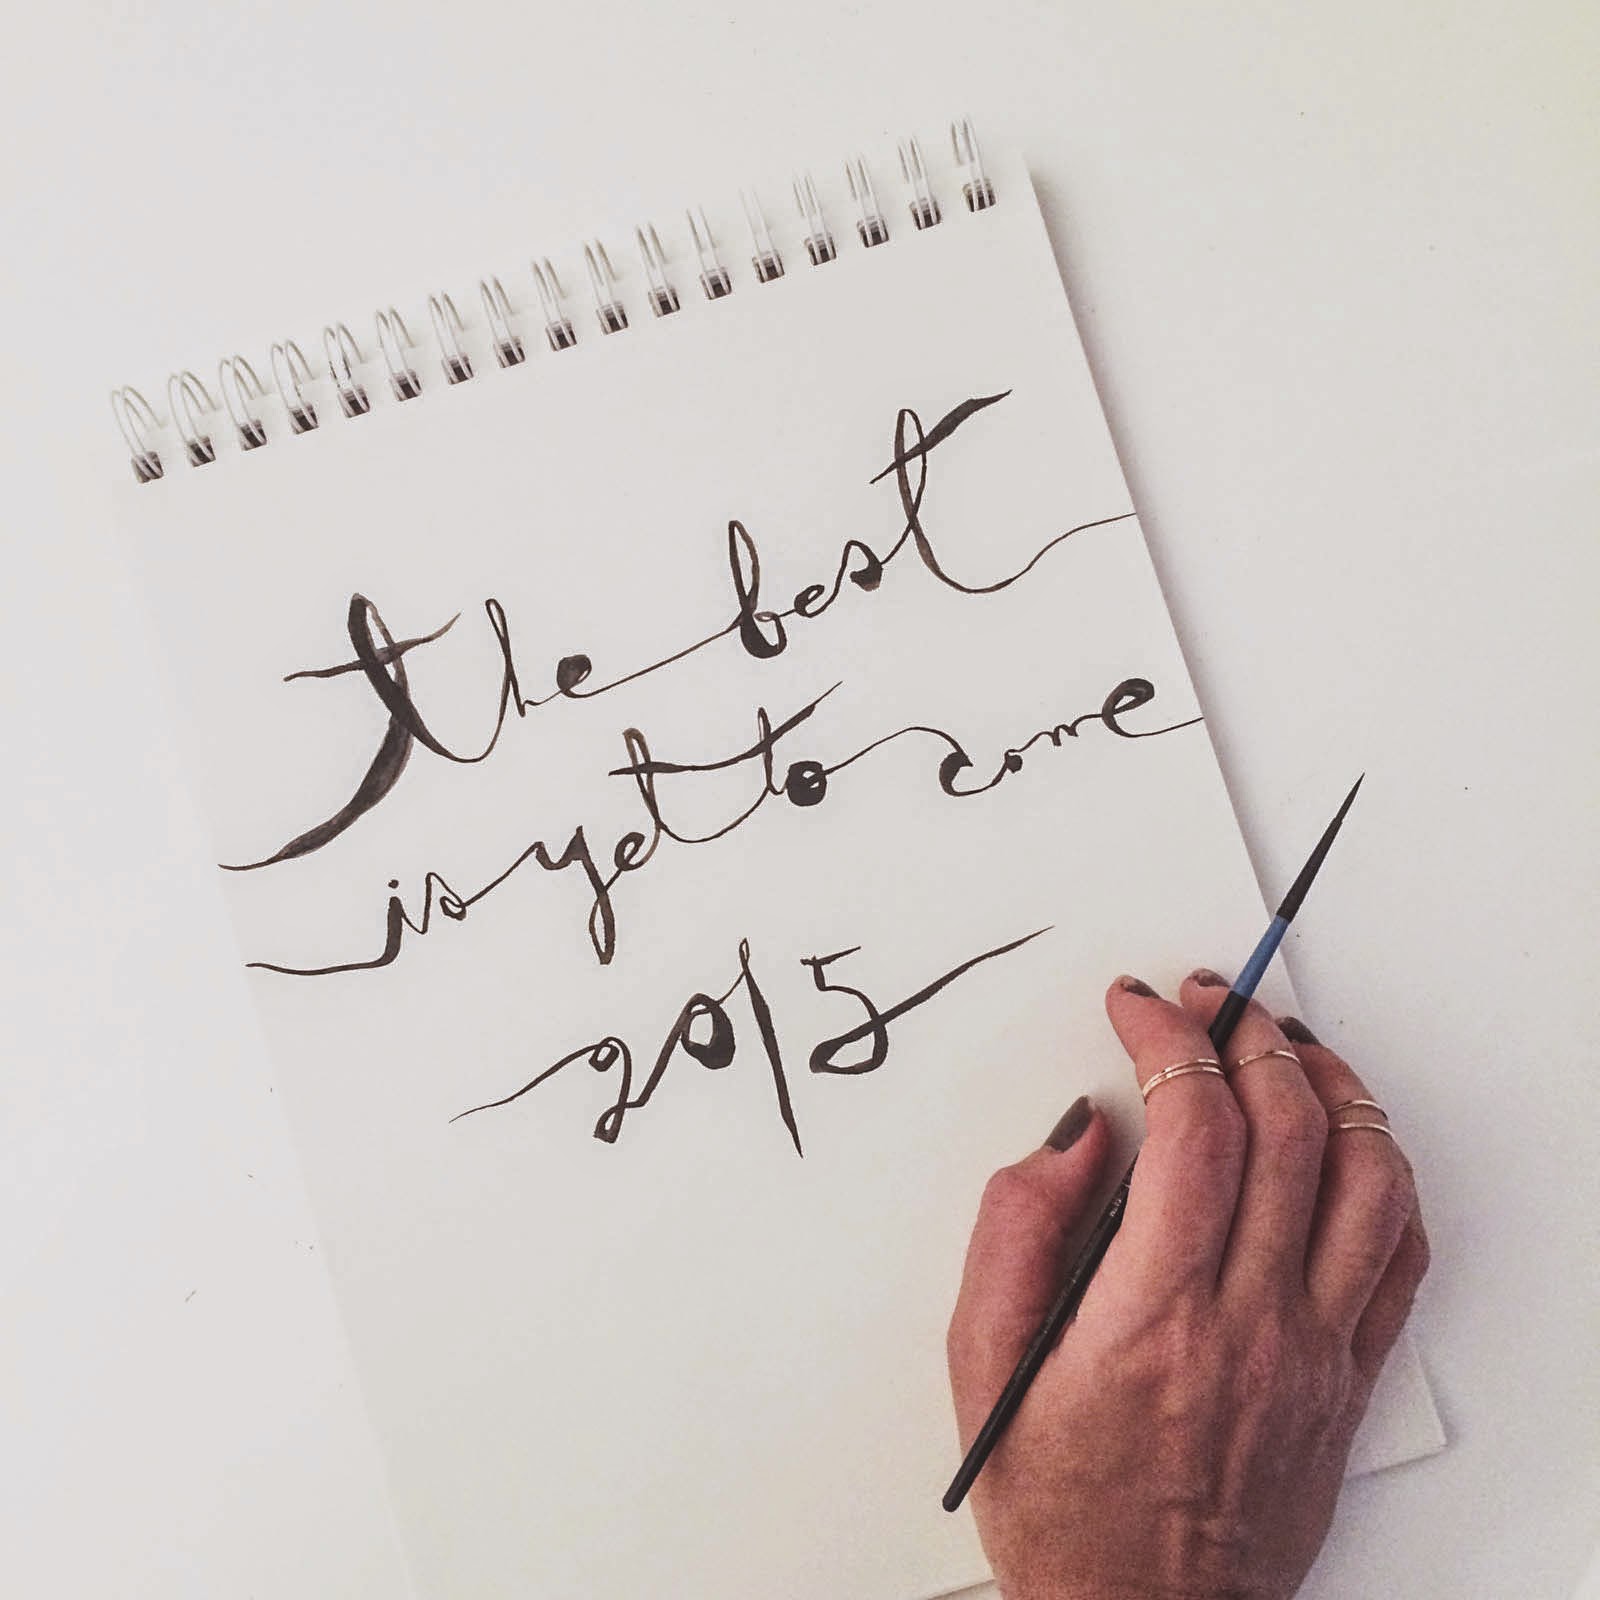 the best
is yet to come
2015